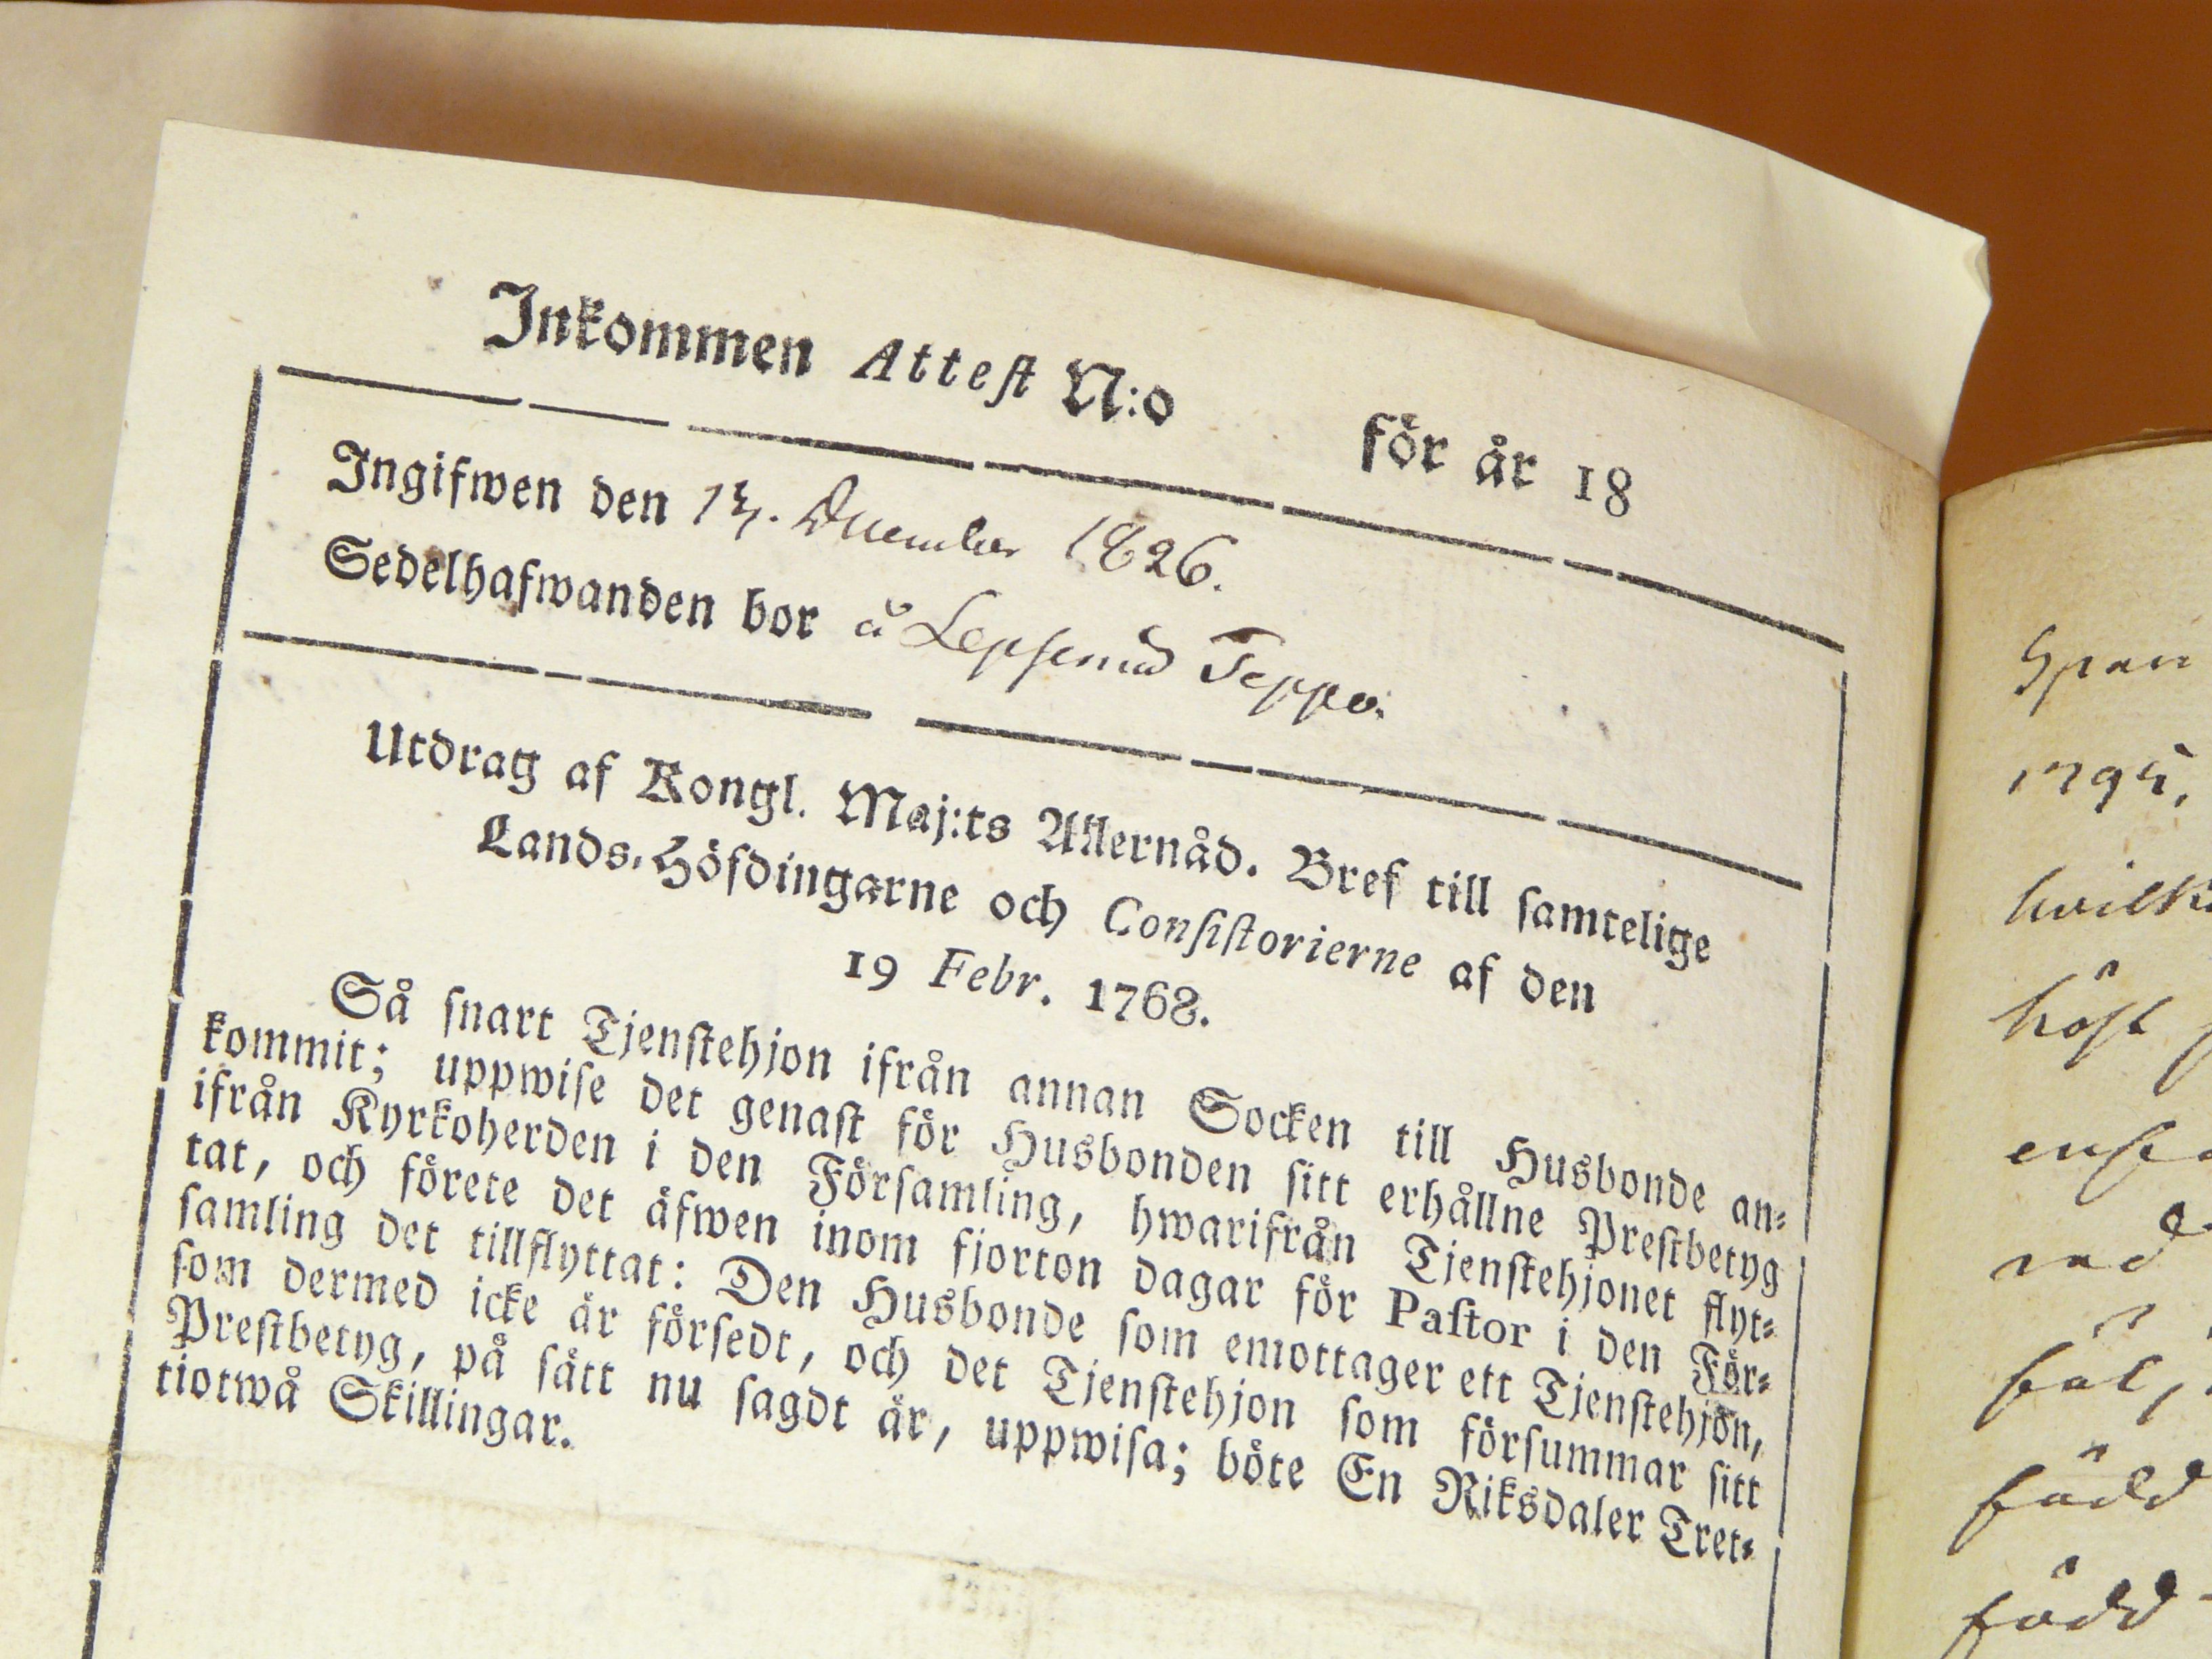 Inkommen Attest N:o för år 18
Ingifwen den 13. December 1826.
Sedelhafwanden bor å Lepsemä Teppo.
Utdrag af Kongl. Maj:ts Allernåd. Bref till samtelige
Lands-Höfdingarne och Consistorierne af den
19 Febr. 1768.
Så snart Tjenstehjon ifrån annan Socken till Husbonde an-
kommit; uppwise det genast för Husbonden sitt erhållne Prestbetyg
ifrån Kyrkoherden i den Församling, hwarifrån Tjenstehjonet flyt-
tat, och förete det äfwen inom fjorton dagar för Pastor i den För-
samling det tillflyttat: Den Husbonde som emottager ett Tjenstehjon,
som dermed icke är försedt, och det Tjenstehjon som försummar sitt
Prestbetyg, på sätt nu sagdt är, uppwisa; böte En Riksdaler Tret-
tiotwå Skillingar.
1795,
höst
född
född